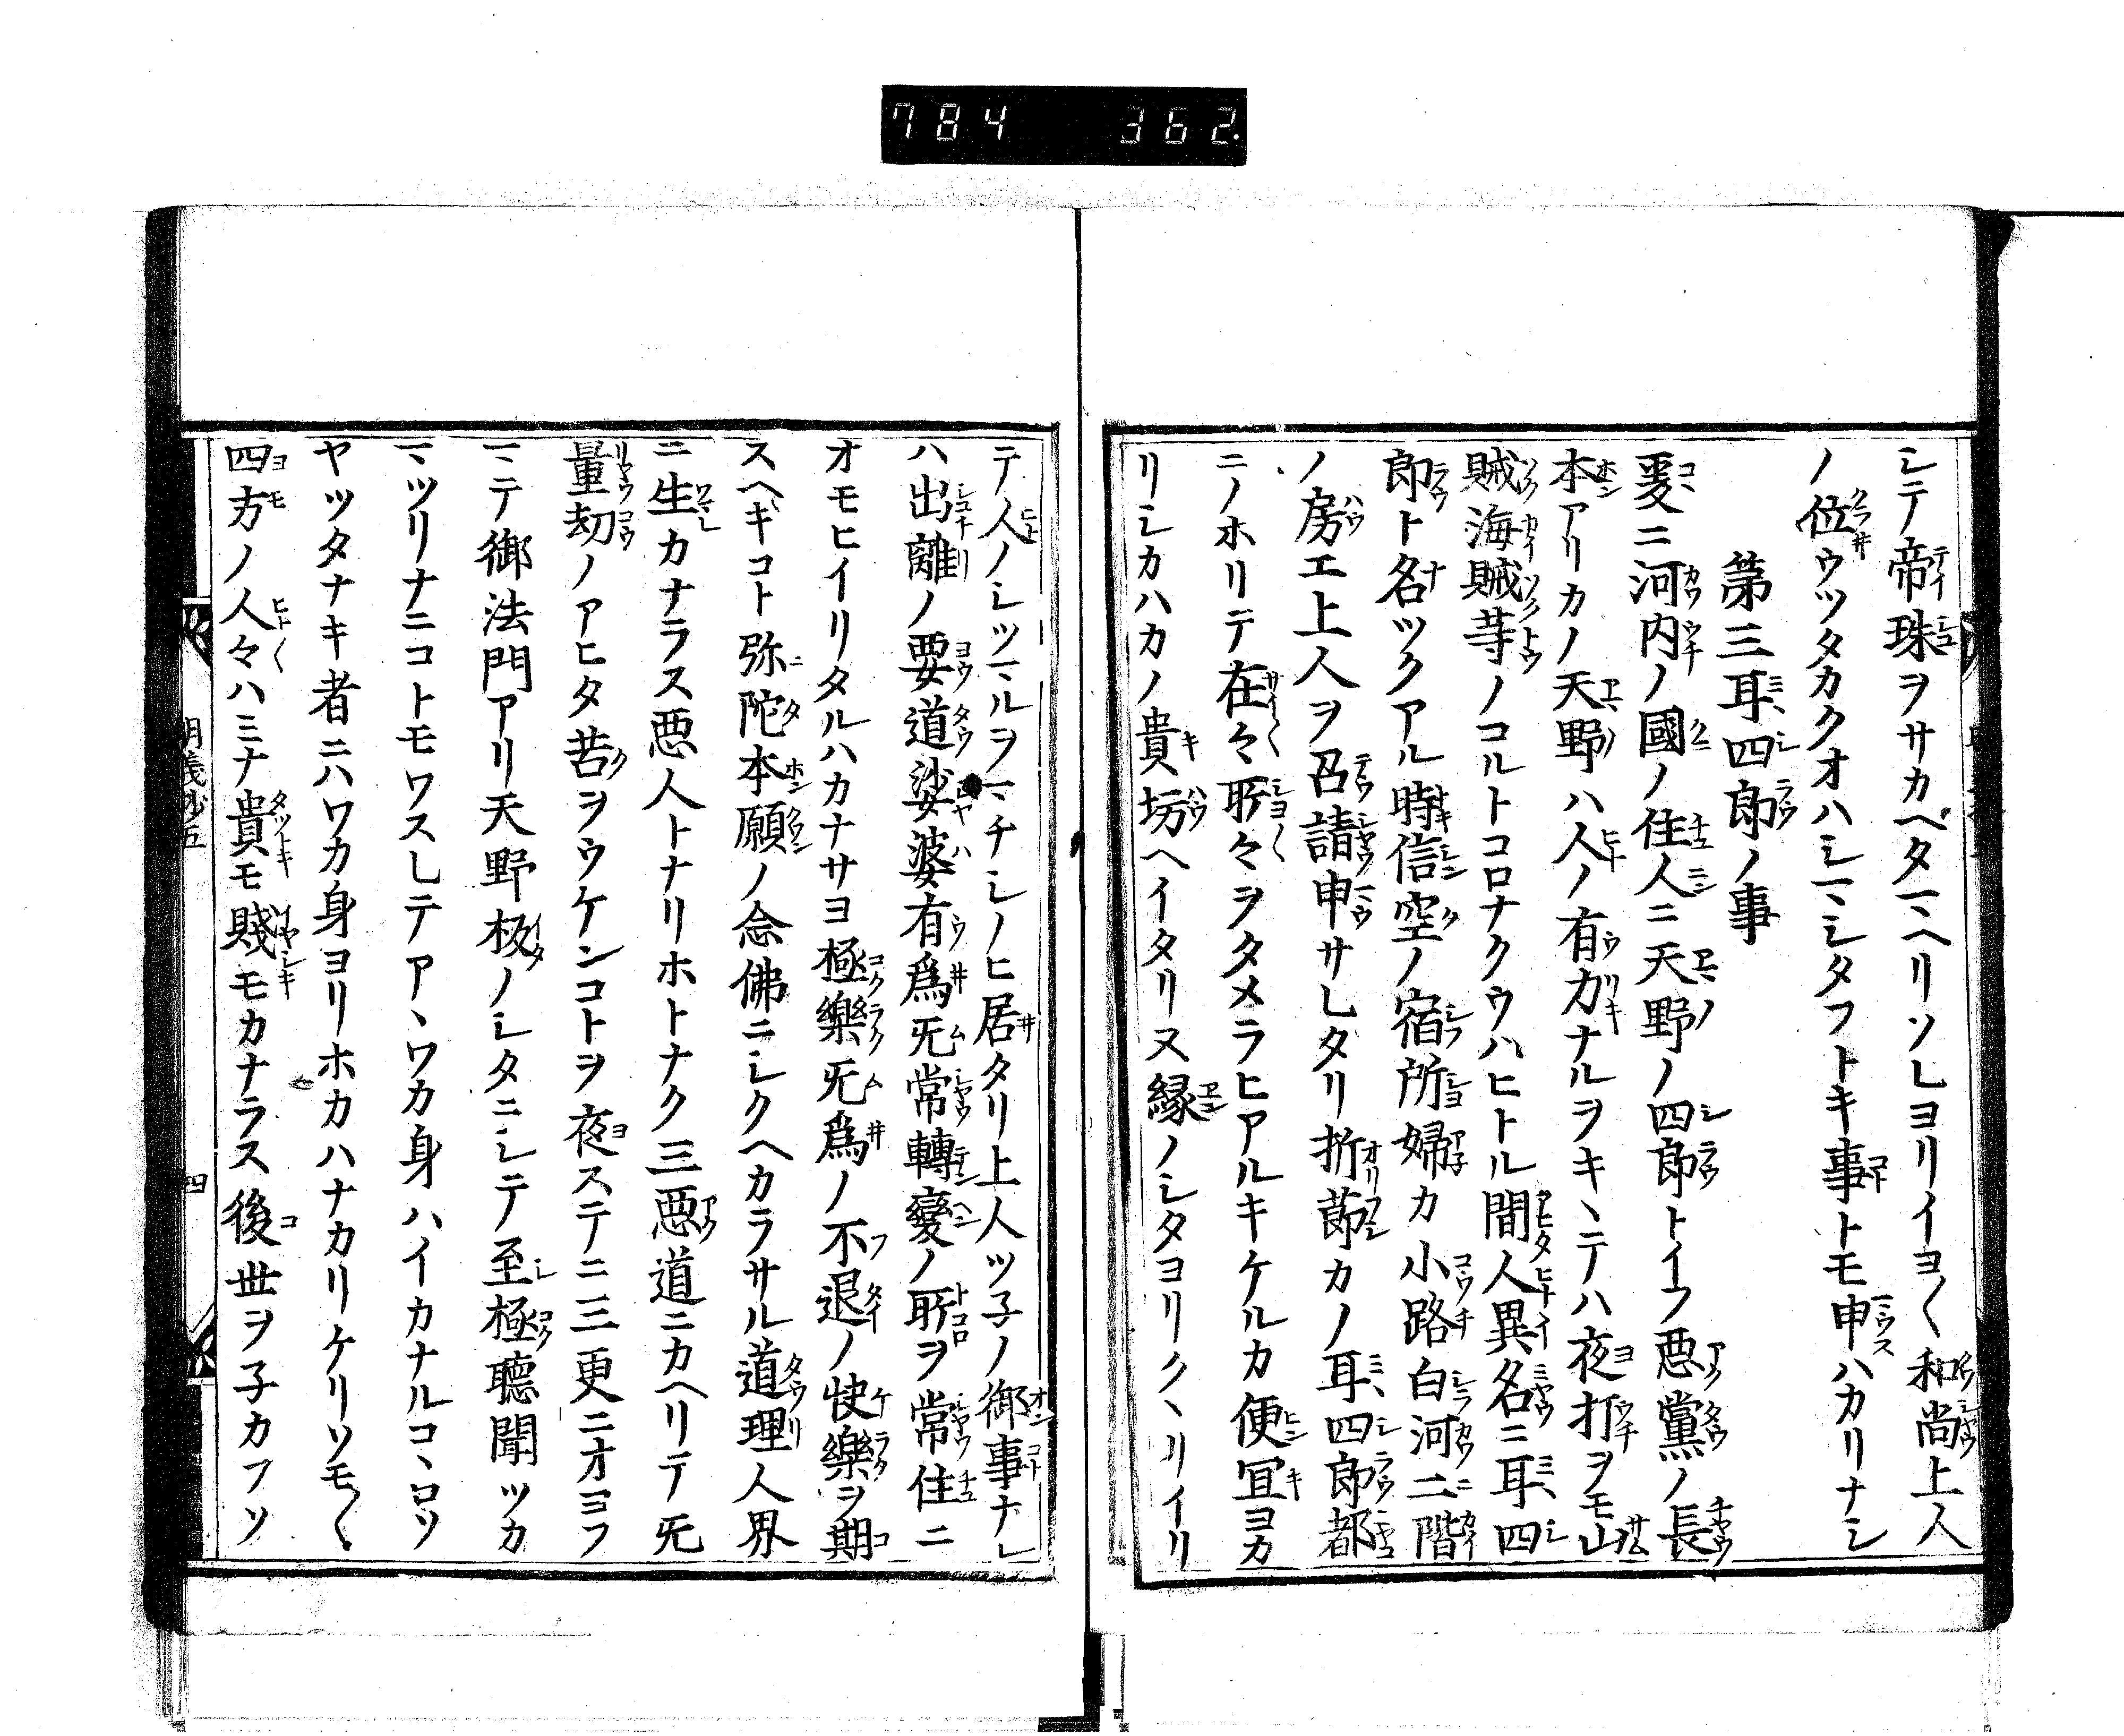 784 362.
シテ帝珠ヲサカベタマヘリソレヨリイヨ〱和尚上人
ノ位ウツタカクオハシマシタフトキ事トモ申ハカリナシ
第三耳四郎ノ事
爰ニ河内ノ國ノ住人ニ天野ノ四郎トイフ悪黨ノ長
本アリカノ天野ハ人ノ有力ナルヲキヽテハ夜打ヲモ山
賊海賊等ノコルトコロナクウハヒトル間人異名ニ耳四
郎ト名ツクアル時信空ノ宿所婦カ小路白河二階
ノ房エ上人ヲ召請申サレタリ折節カノ耳四郎都
ニノホリテ在々所々ヲタメラヒアルキケルカ便冝ヨカ
リシカハカノ貴坊ヘイタリヌ縁ノシタヨリクヽリイリ
テ人ノシツマルヲマチシノヒ居タリ上人ツ子ノ御事ナレ
ハ出離ノ要道娑婆有爲无常轉變ノ所ヲ常住ニ
オモヒイリタルハカナサヨ極樂无爲ノ不退ノ快樂ヲ期
スヘギコト弥陀本願ノ念佛ニシクヘカラサル道理人界
ニ生カナラス悪人トナリホトナク三悪道ニカヘリテ无
量劫ノアヒタ苦ヲウケンコトヲ夜ステニ三更ニオヨフ
マテ御法門アリ天野板ノシタニシテ至極聴聞ツカ
マツリナニコトモワスレテアヽワカ身ハイカナルコヽロソ
ヤツタナキ者ニハワカ身ヨリホカハナカリケリソモ〱
四方ノ人々ハミナ貴モ賤モカナラス後世ヲ子カフソ
明義抄五
四